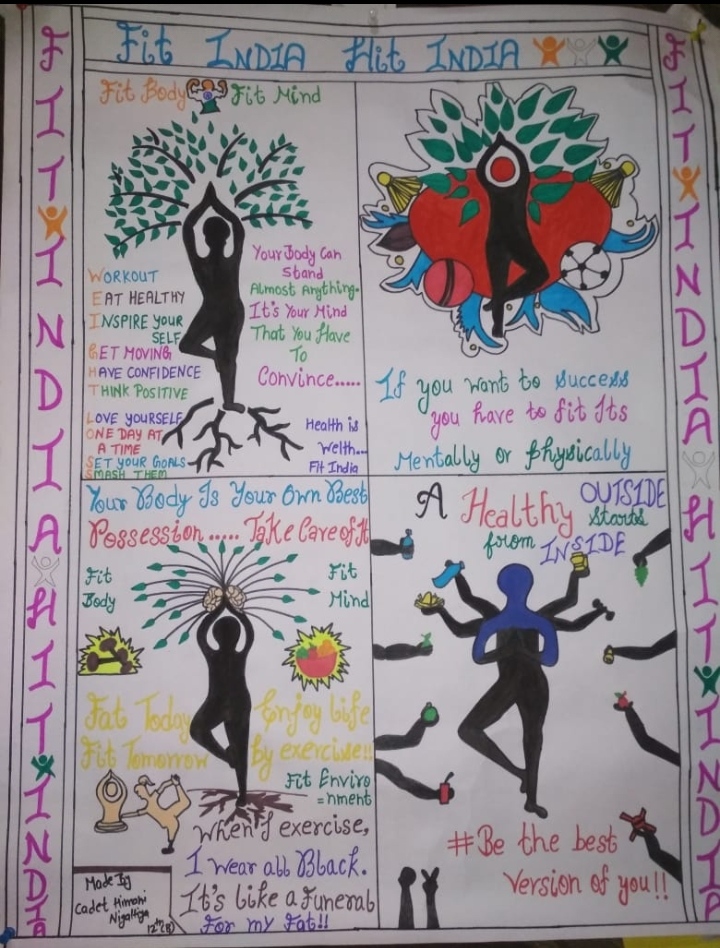 Fit INDIA Hit INDIA
FIT INDIA HIT INDIA
Fit Body Fit Mind
WORKOUT
EAT HEALTHY
INSPIRE YOUR
SELF
GET MOVING
HAVE CONFIDENCE
THINK POSITIVE
LOVE YOURSELF
ONE DAY AT
A TIME
SET YOUR GOALS
SMASH THEM
Your Body Can
Stand
Almost Anything.
It's Your Mind
That You Have
To
Convince.....
Health is
Welth...
Fit India
If you want to success
you have to fit Its
Mentally or physically
Your Body Is Your Own Best
Possession ..... Take Care of It
Fit
Body
Fit
Mind
Fat Today
Fit Tomorrow
Enjoy life
by exercise!!
Fit Enviro
=nment
When I exercise,
I wear all Black.
It's like a Funeral
For my Fat!!
Made By
Cadet Himani
12th (B)
A Healthy OUTSIDE
Starts
from INSIDE
#Be the best
Version of you!!
FIT INDIA HIT INDIA